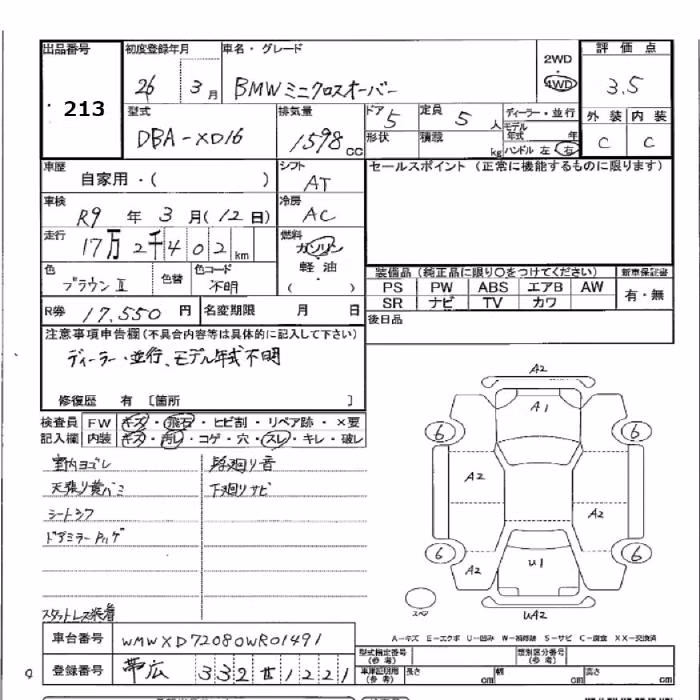 出品番号 初度登録年月 車名・グレード 2WD 4WD 評価点
213 26 3月 BMWミニクロスオーバー 3.5
型式 排気量 ドア 5 定員 5人 ディーラー・並行 外装 内装
DBA-XD16 1598cc 形状 積載 kg モデル年式 年 ハンドル 左 右 C C
車歴 シフト セールスポイント(正常に機能するものに限ります)
自家用・( ) AT
車検 冷房
R9年3月(12日) AC
走行 燃料
17万2千402km ガソリン
軽油
色 色替 色コード ( )
ブラウンII 不明 装備品(純正品に限り○をつけてください) 新車保証書
PS PW ABS エアB AW 有・無
R券 17,550円 名変期限 月 日 SR ナビ TV カワ
後日品
注意事項申告欄(不具合内容等は具体的に記入して下さい)
ディーラー・並行、モデル年式不明
修復歴 有 〔箇所 〕
検査員 FW キズ・飛石・ヒビ割・リペア跡・×要
記入欄 内装 キズ・汚レ・コゲ・穴・スレ・キレ・破レ
室内ヨゴレ
天張り黄バミ 下廻りサビ
シートシワ
スタットレス装着
A2
A1
6 6
A2
A2
6 6
A2
U1
スペ
UA2
A-キズ E-エクボ U-凹み W-補修跡 S-サビ C-腐食 XX-交換済
車台番号 WMWXD72080WR01491
型式指定番号(参考) 類別区分番号(参考)
登録番号 帯広 332 1221
車庫証明用(参考) 長さ cm 幅 cm 高さ cm